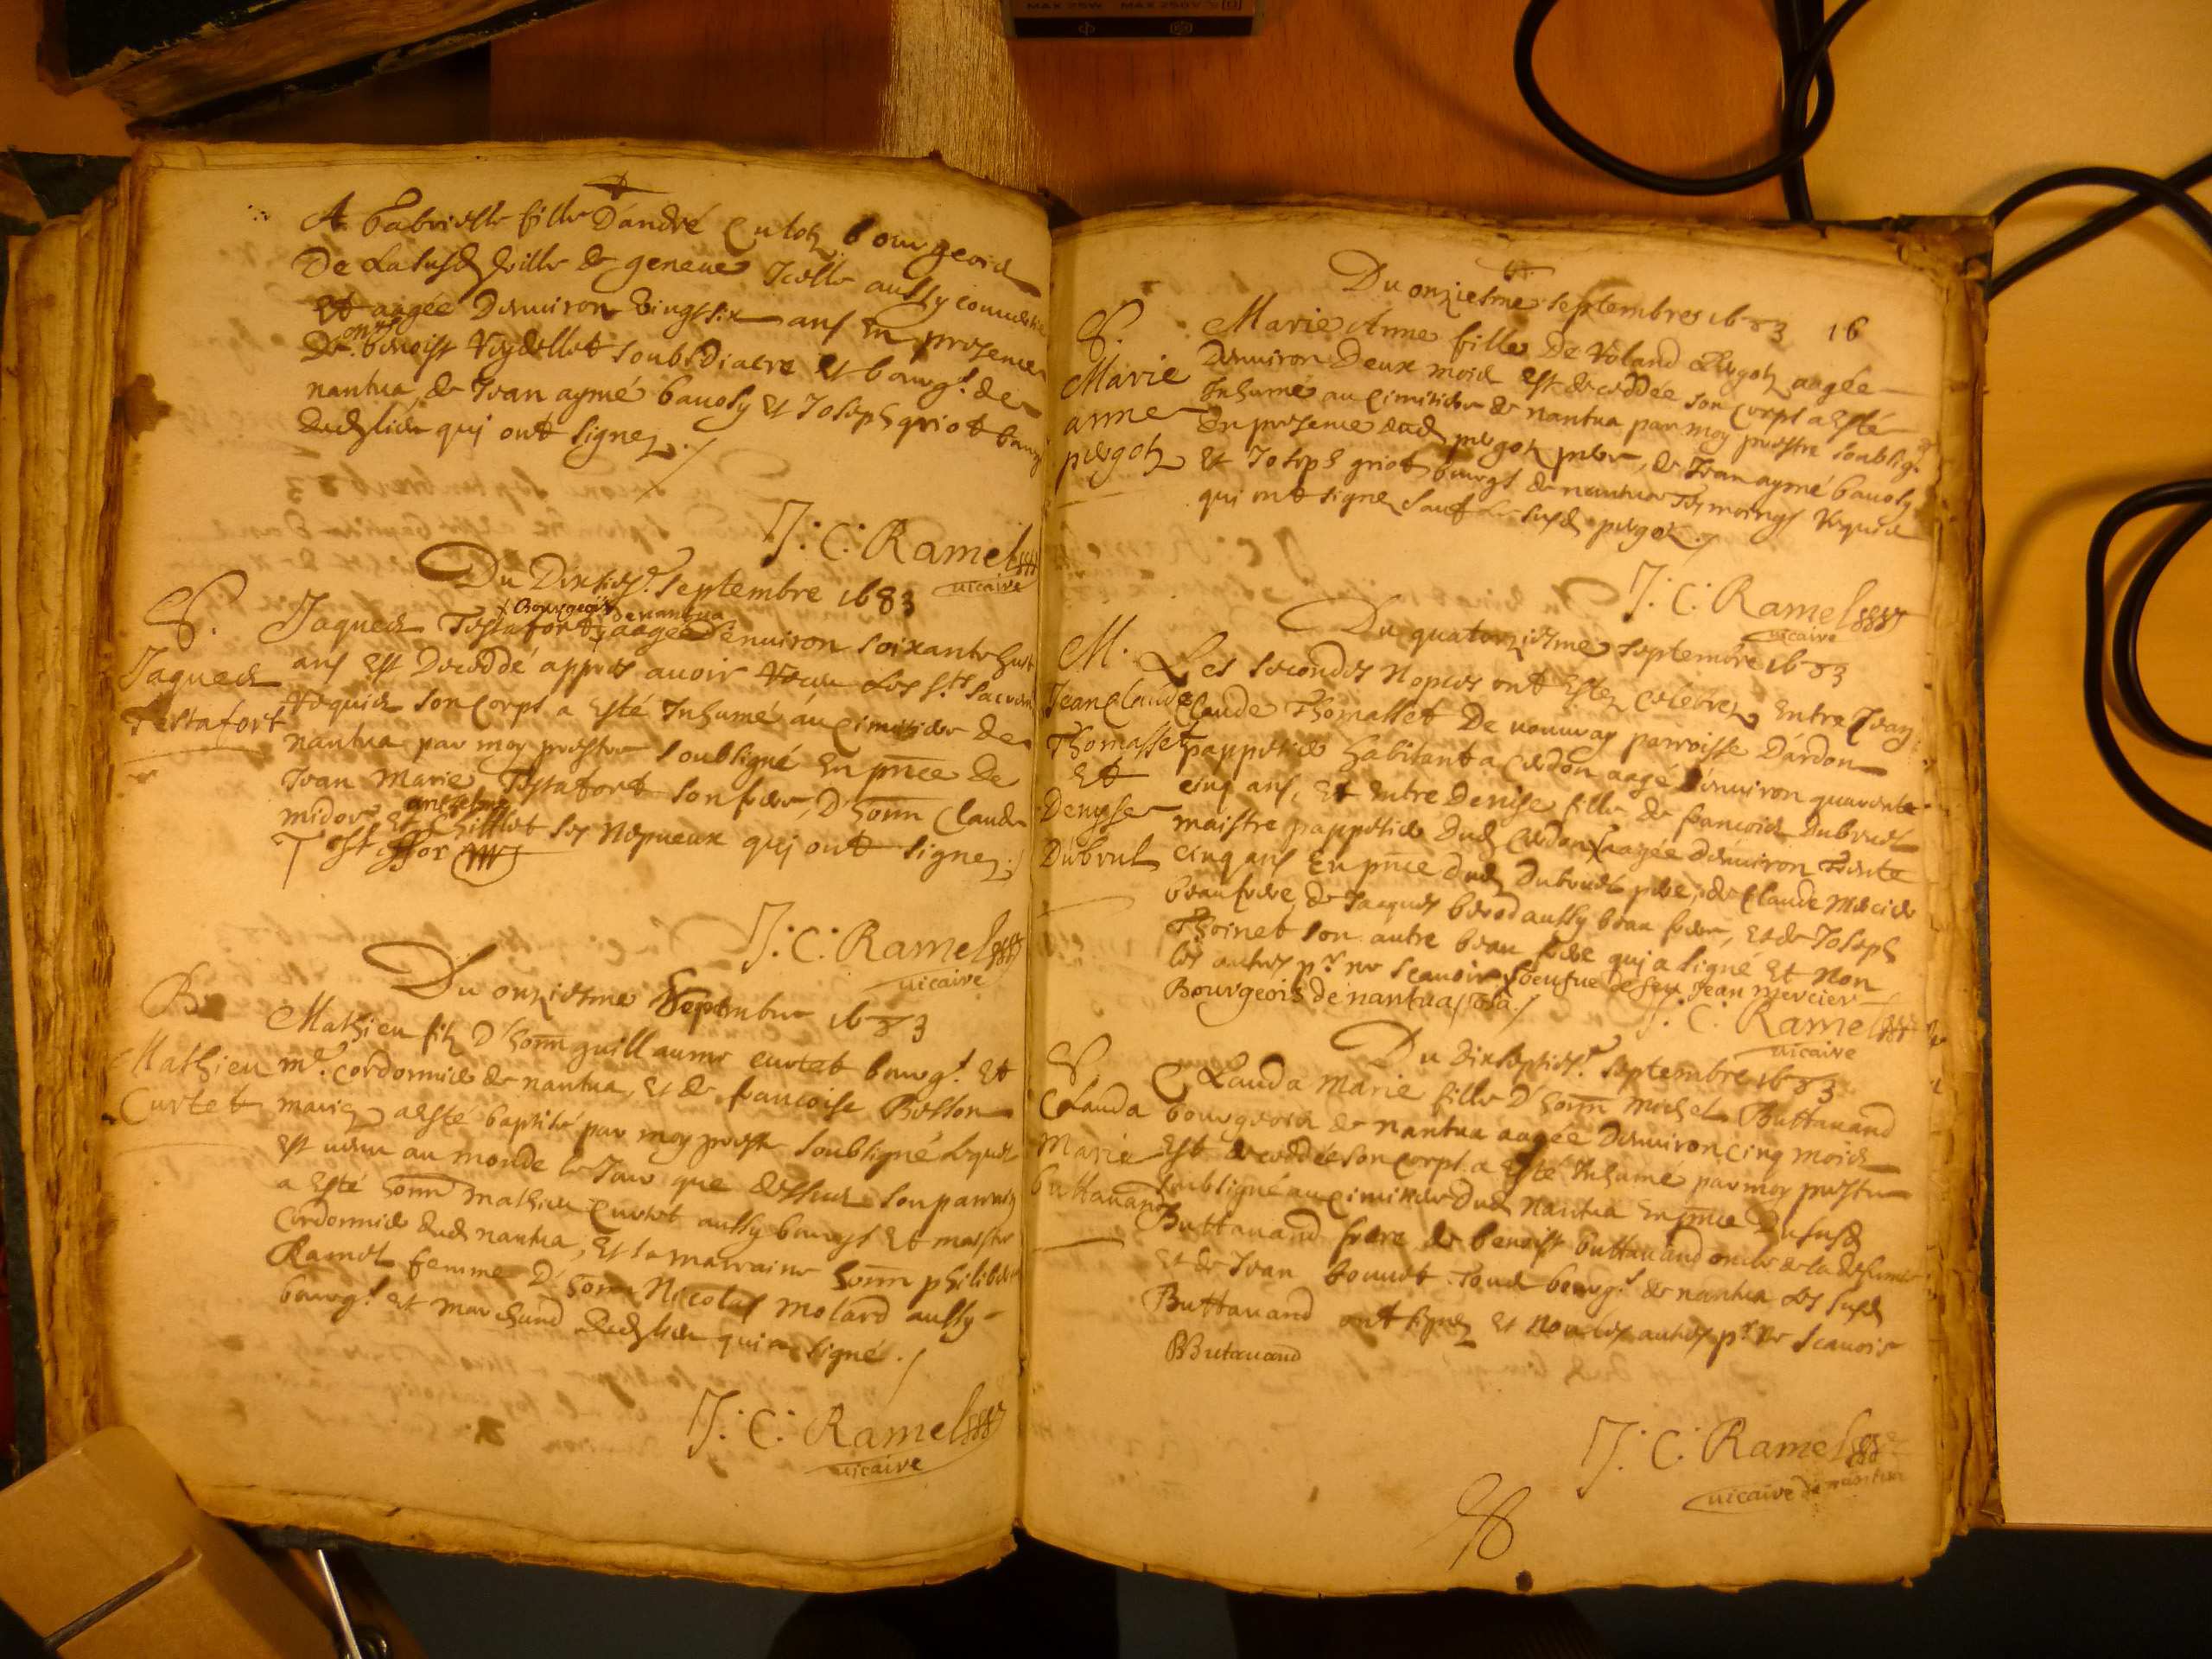 MAX 25W MAX 250V
A Gabrielle fille D'andré Cutoz bourgeois
De La susd ville de geneue Icelle aussy conuertie
Et aagée Denuiron vingt six ans En presence
De Mre benoist Reydellet soubsdiacre et bourg.s de
nantua, de Jean aymé bauosy et Joseph griot bourg
dud lieu qui ont signez ./
J: C: Ramel
vicaire
Du Dixies.e septembre 1683
S.
Jaques Testafort
Bourgeois de nantua
Jaques Testafort aagée Denuiron soixante huit
ans est Decedé appres auoir Receu Les s.ts sacrem
Requis son corps a esté Inhumé au cimitiere de
nantua par moy prestre soubsigné En pnce de
Jean Marie Testafort son frere, D'honn Claude
midor et anthelme Chifflet ses Nepueux qui ont signez ./
Testaffor
J: C: Ramel
vicaire
Du onziesme Septembre 1683
B
Mathieu Curtet
Mathieu filz D'honn guillaume curtet bourg.s Et
m.e cordonnier de nantua, et de francoise Bosson
mariez a esté baptisé par moy prestre soubsigné Lequel
est venu au monde le Jour que dessus son parrein
a esté honn mathieu Curtet aussy bourgs Et maistre
Cordonnier dud nantua, Et la marraine honn philiberte
Ramel femme D'honn Nicolas molard aussy
bourg.s et marchand dud lieu qui a signé ./
J: C: Ramel
vicaire
Du onziesme septembre 1683
16
S.
Marie anne pergoz
Marie Anne fille De Roland Pergoz aagée
Denuiron Deux mois est decedée son corps a Esté
Inhumé au cimitiere de nantua par moy prestre soubsig.é
En presence dud pergoz pere, de Jean aymé bauosy
Et Joseph griot bourgs de nantua Tesmoings Requis
qui ont signez sauf le susd pergoz ./
J: C: Ramel
vicaire
Du quatorziesme septembre 1683
M.
Jean Claude Thomasset Et Denysse Dubrul
Les secondes Nopces ont estez celebrez Entre Jean
Claude Thomasset De parroisse D'ardon
pappetier habitant a Cerdon aagé Denuiron quarente
cinq ans, Et Entre Denise fille de francois dubruel
maistre pappetier dud Cerdon aagée Denuiron Trente
cinq ans En pnce dud Dubruel pere, de Claude Mercier
beaufrere, de Jacques berod aussy beau frere, et de Joseph
Thoinet son autre beau frere qui a signé et Non
les autres p.r ne scauoir Xveufue de feu Jean mercier
Bourgeois de nantua ./
J: C: Ramel
vicaire
Du dixsepties.e septembre 1683
S.
Clauda Marie buttauand
Clauda marie fille D'honn michel Buttauand
bourgeois de nantua aagée Denuiron cinq mois
est decedée son corps a esté Inhumé par moy prestre
soubsigné au cimitiere dud Nantua En pnce Du susd
Buttauand frere de benoist buttauand oncle de la defunte
et de Jean tous bourg.s de nantua Les susd
Buttauand ont signez et Non les autres p.r ne scauoir
BButauand
J: C: Ramel
vicaire de nantua